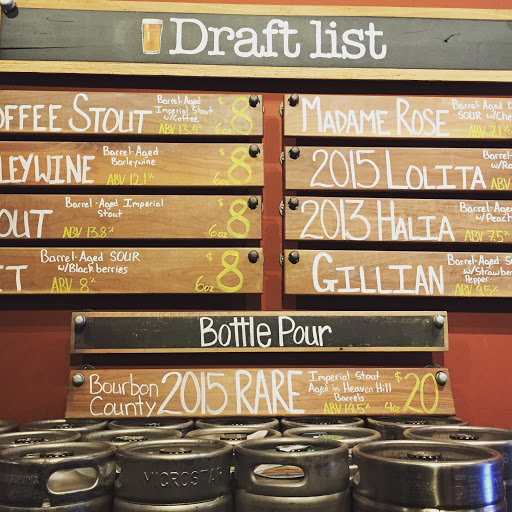 Draft list
OFFEE STOUT Barrel-Aged Imperial Stout w/Coffee ABV 13.4% $8 6oz
LEYWINE Barrel-Aged Barleywine ABV 12.1% $8 6oz
OUT Barrel-Aged Imperial Stout ABV 13.8% $8 6oz
ET Barrel-Aged SOUR w/Blackberries ABV 8% $8 6oz
MADAME ROSE Barrel-Aged SOUR w/Che ABV 7.1%
2015 LOLITA Barrel-Aged w/Ra ABV
2013 HALIA Barrel-Aged w/Peach ABV 7.5%
GILLIAN Barrel-Aged So w/Strawber Pepper ABV 9.5%
Bottle Pour
Bourbon County 2015 RARE Imperial Stout Aged in Heaven Hill Barrels ABV 14.5% $20 4oz
MICROSTAR